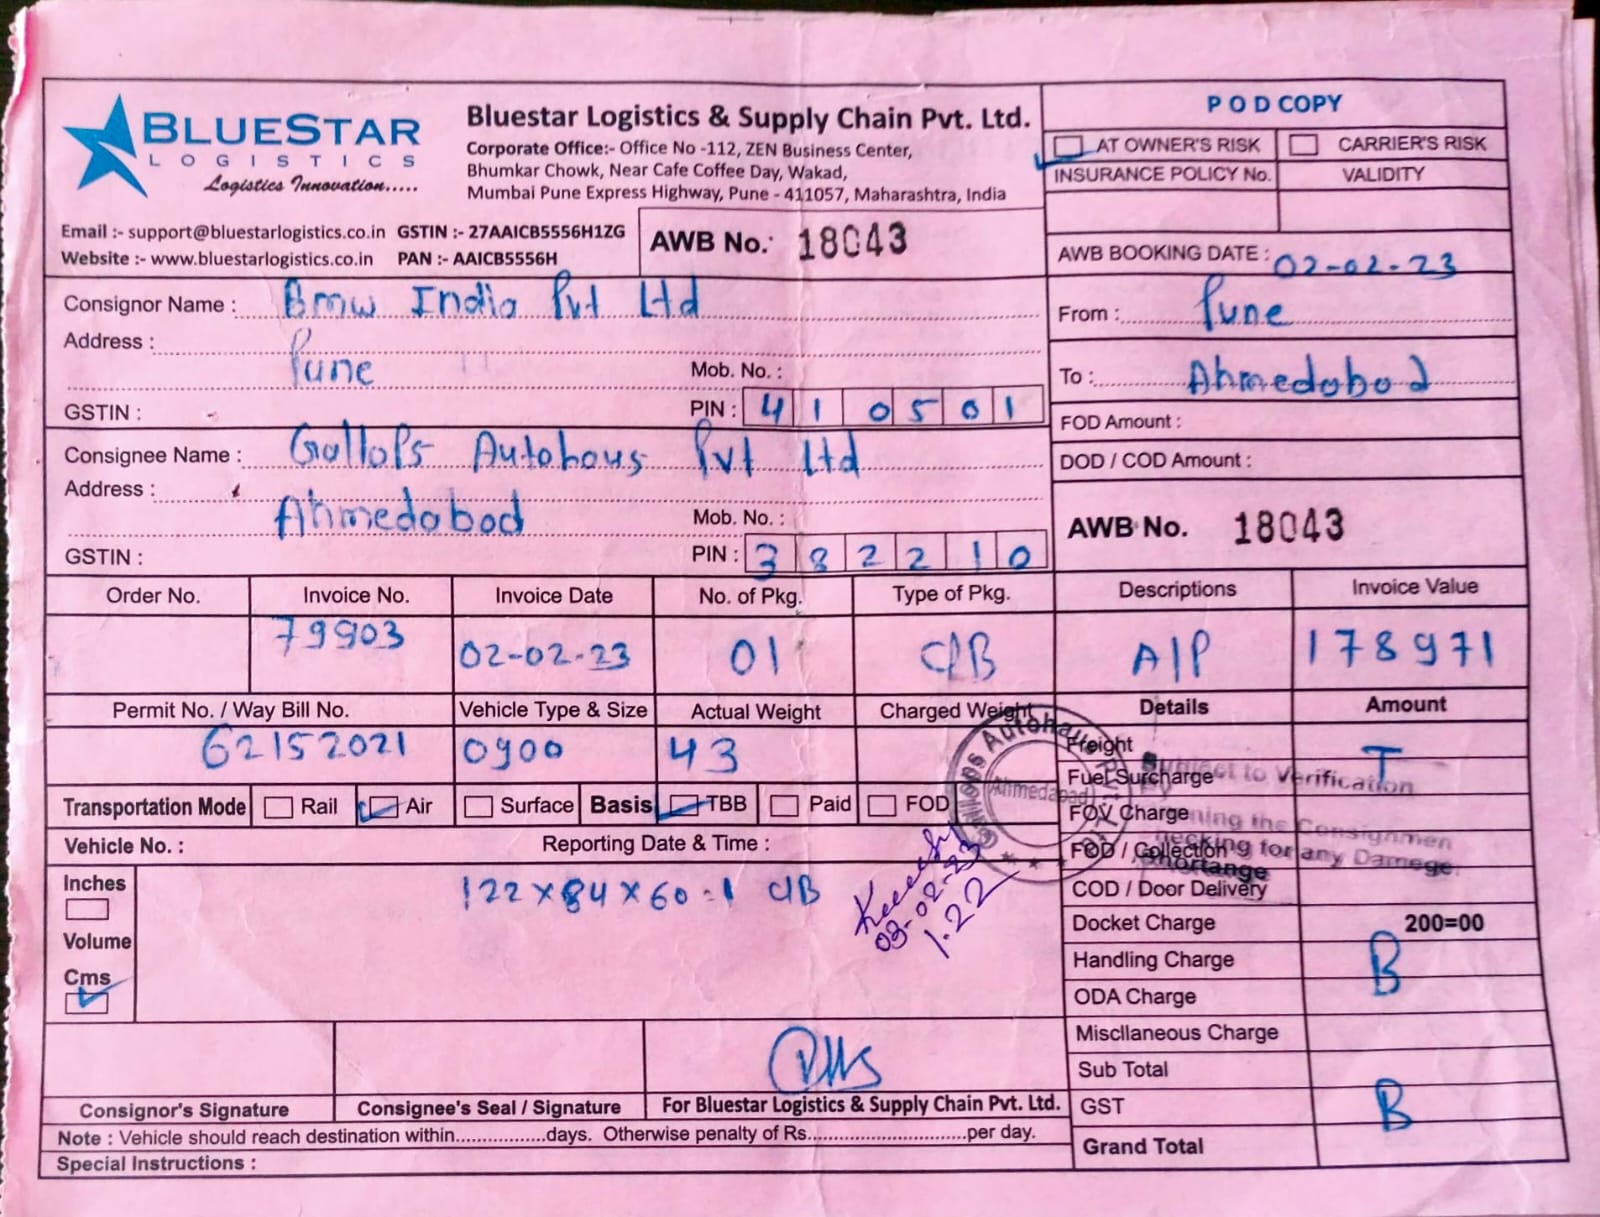 BLUESTAR
LOGISTICS
Logistics Innovation.....
Bluestar Logistics & Supply Chain Pvt. Ltd.
Corporate Office:- Office No -112, ZEN Business Center,
Bhumkar Chowk, Near Cafe Coffee Day, Wakad,
Mumbai Pune Express Highway, Pune - 411057, Maharashtra, India
POD COPY
AT OWNER'S RISK CARRIER'S RISK
INSURANCE POLICY No. VALIDITY
Email :- support@bluestarlogistics.co.in GSTIN :- 27AAICB5556H1ZG
Website :- www.bluestarlogistics.co.in PAN :- AAICB5556H
AWB No. 18043
AWB BOOKING DATE : 02-02-23
Consignor Name : Bmw India Pvt Ltd
From : Pune
Address : Pune
Mob. No. :
To : Ahmedabad
GSTIN : PIN : 410501
FOD Amount :
Consignee Name : Gallops Autohaus Pvt Ltd
DOD / COD Amount :
Address : Ahmedabad
Mob. No. :
AWB No. 18043
GSTIN : PIN : 382210
Order No. Invoice No. Invoice Date No. of Pkg. Type of Pkg. Descriptions Invoice Value
79903 02-02-23 01 C/B A/P 178971
Permit No. / Way Bill No. Vehicle Type & Size Actual Weight Charged Weight Details Amount
62152021 0900 43
Freight T
Fuel Surcharge
Transportation Mode Rail Air Surface Basis TBB Paid FOD
FOV Charge
Vehicle No. : Reporting Date & Time :
FOD / Collection
Gallops Autohaus Pvt.
Ahmedabad
Subject to Verification
the Consignmen
for any Damege
Shortange
Inches
Volume
Cms
122 x 84 x 60 = 1 C/B
03-02-23
1.22
COD / Door Delivery
Docket Charge 200=00
Handling Charge B
ODA Charge
Miscllaneous Charge
Sub Total
GST B
Grand Total
Consignor's Signature Consignee's Seal / Signature For Bluestar Logistics & Supply Chain Pvt. Ltd.
Note : Vehicle should reach destination within.................days. Otherwise penalty of Rs.............................per day.
Special Instructions :